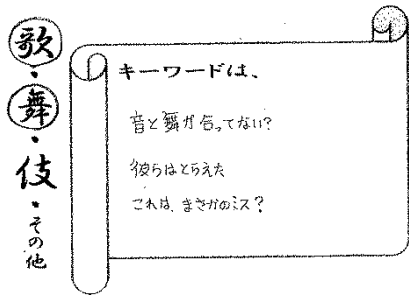 歌・舞・伎・その他
キーワードは、
音と舞が合ってない?
彼らはとらえた
これは、まさかのミス?